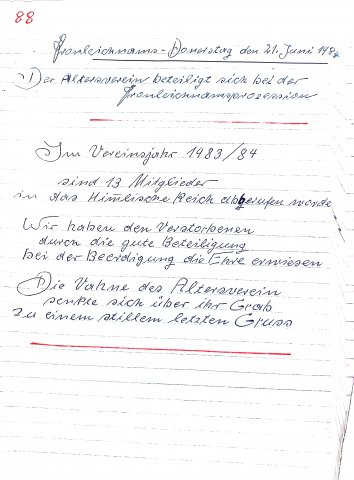 88
Fronleichnams-Donerstag den 21. Juni 1984
Der Altersverein beteiligt sich bei der
Fronleichnamsprozession
Im Vereinsjahr 1983/84
sind 13 Mitglieder
in das Himlische Reich abberufen worde
Wir haben den Verstorbenen
durch die gute Beteiligung
bei der Beerdigung die Ehre erwiesen
Die Vahne des Altersverein
senkte sich über ihr Grab
zu einem stillem letzten Gruss